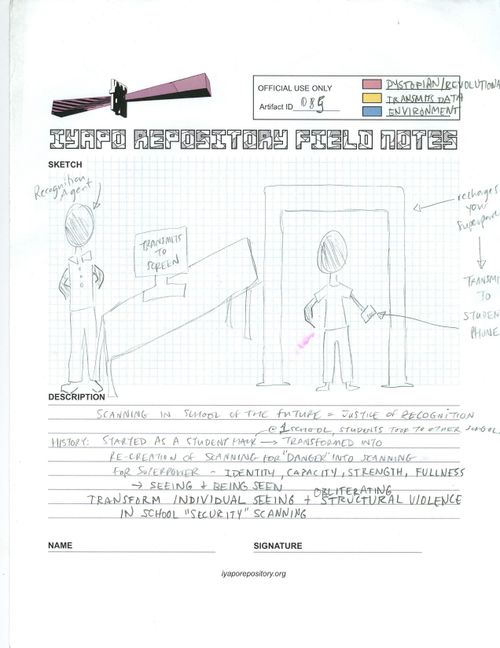 OFFICIAL USE ONLY
Artifact ID 085
DYSTOPIAN/REVOLUTIONA
TRANSMITS DATA
ENVIRONMENT
IYAPO REPOSITORY FIELD NOTES
SKETCH
Recognition
Agent
TRANSMITS
TO
SCREEN
recharges
your
superpower
TRANSMIT
TO
STUDENT
PHONE
DESCRIPTION
SCANNING IN SCHOOL OF THE FUTURE = JUSTICE OF RECOGNITION
@ 1 SCHOOL, STUDENTS TOOK TO OTHER SCHOOL
HISTORY: STARTED AS A STUDENT HACK → TRANSFORMED INTO
RE-CREATION OF SCANNING FOR "DANGER" INTO SCANNING
FOR SUPERPOWER - IDENTITY, CAPACITY, STRENGTH, FULLNESS
→ SEEING + BEING SEEN
OBLITERATING
TRANSFORM INDIVIDUAL SEEING + STRUCTURAL VIOLENCE
IN SCHOOL "SECURITY" SCANNING
NAME
SIGNATURE
iyaporepository.org